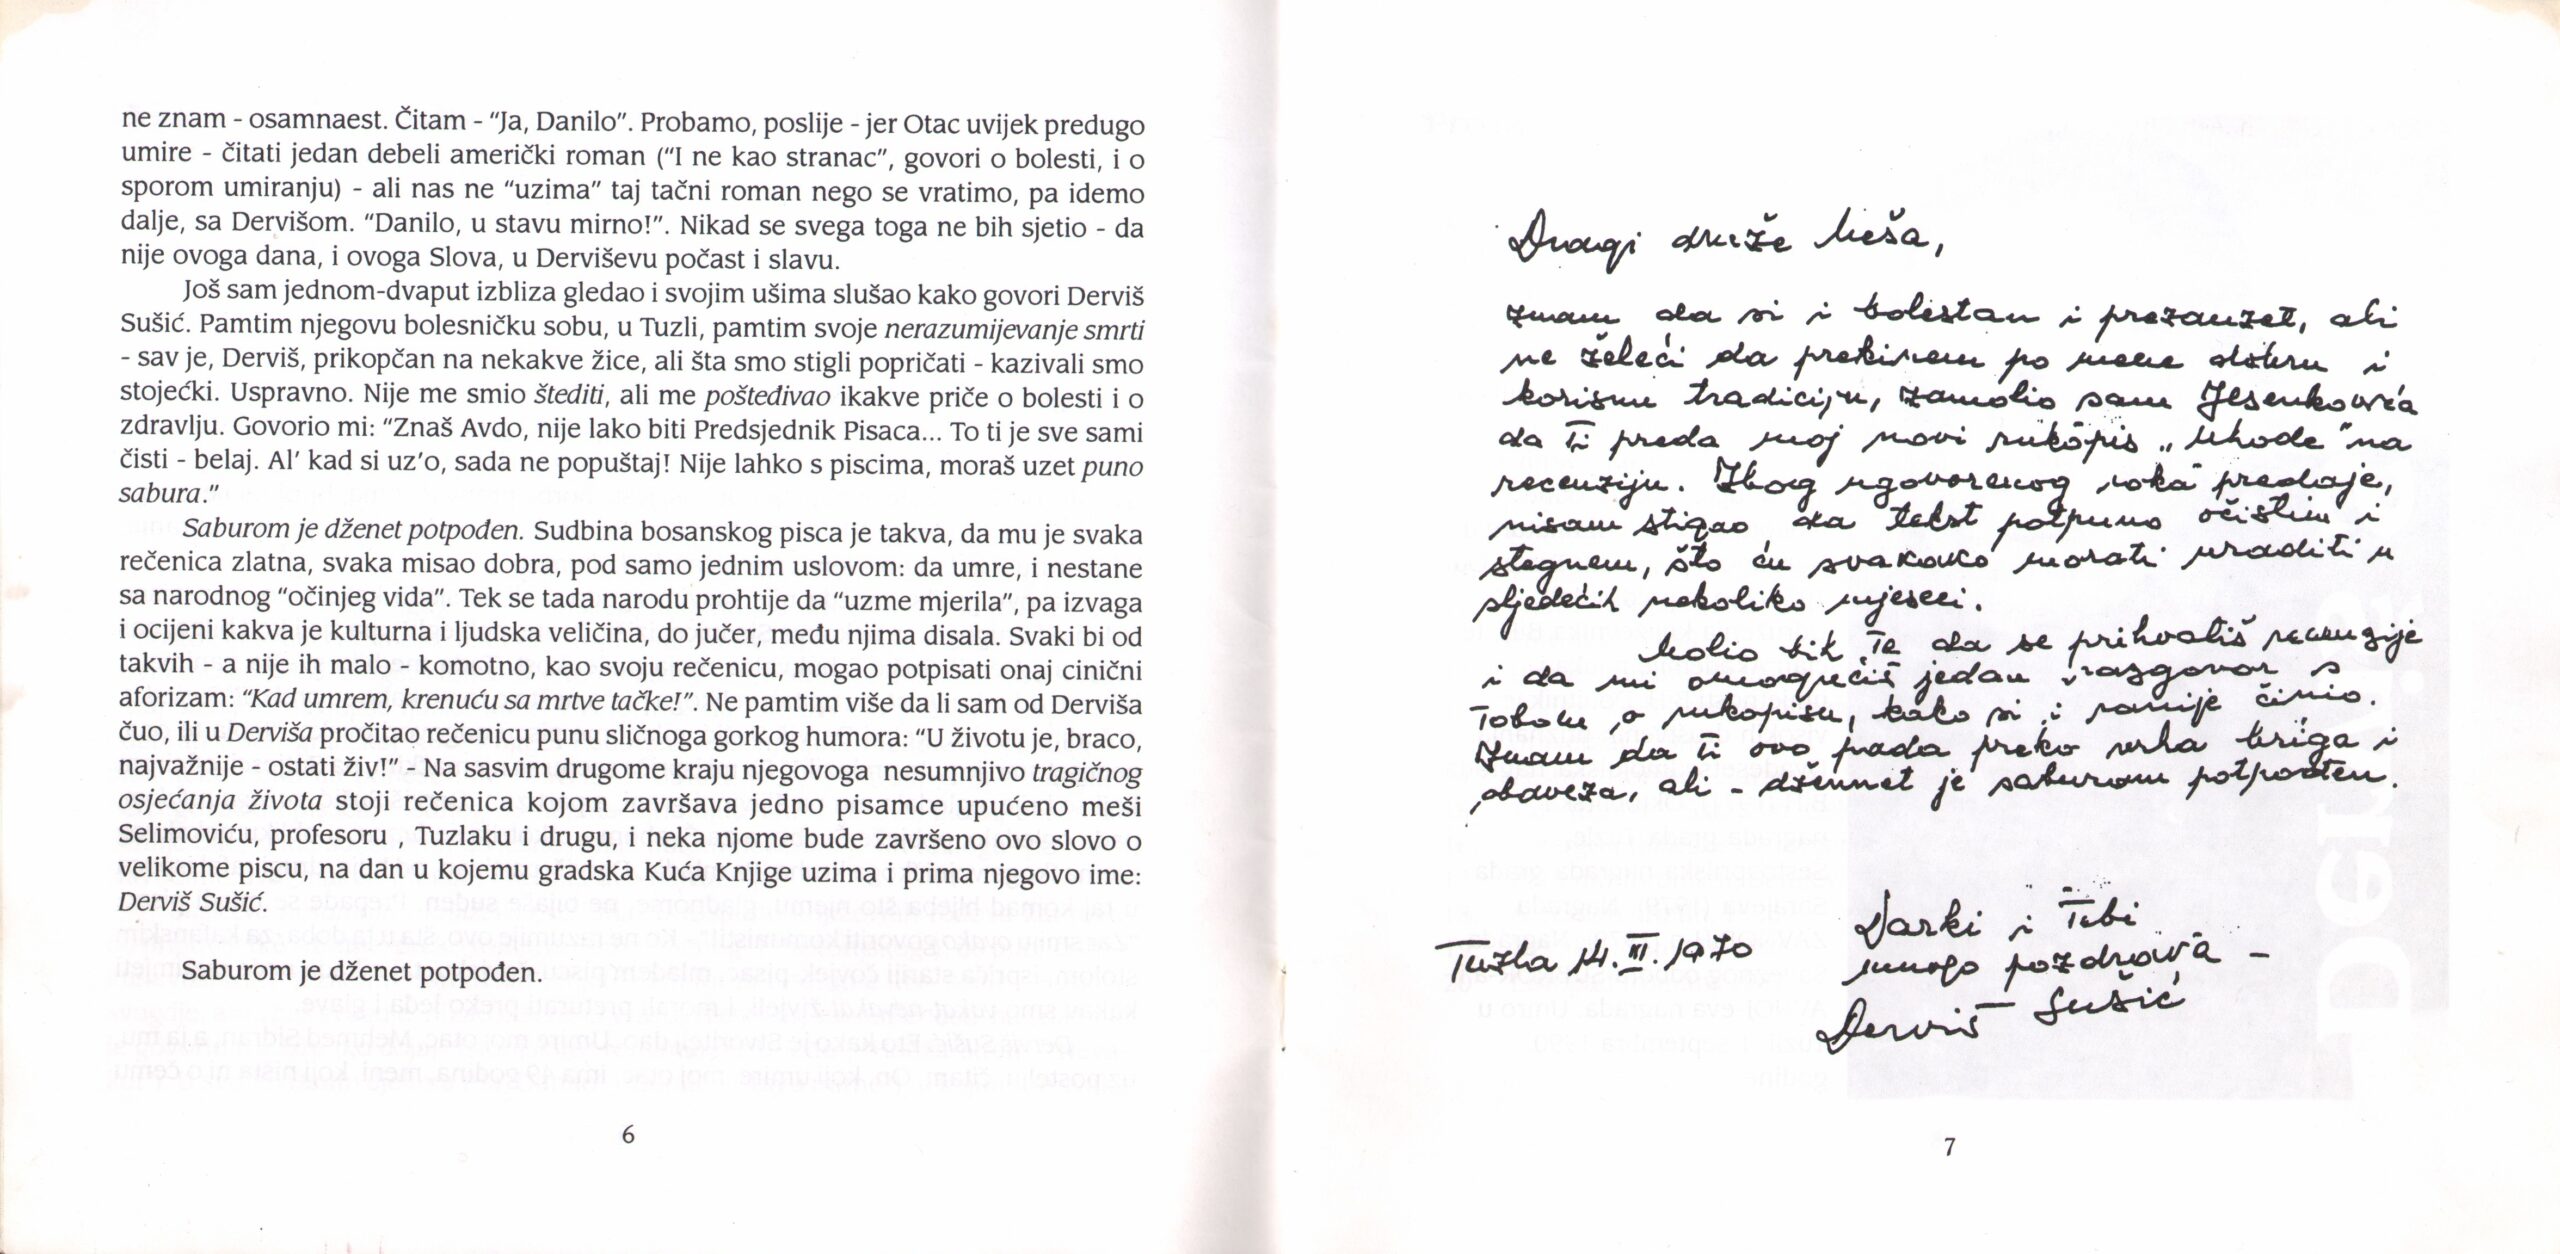 ne znam - osamnaest. Čitam - “Ja, Danilo”. Probamo, poslije - jer Otac uvijek predugo
umire - čitati jedan debeli američki roman (“I ne kao stranac”, govori o bolesti, i o
sporom umiranju) - ali nas ne “uzima” taj tačni roman nego se vratimo, pa idemo
dalje, sa Dervišom. “Danilo, u stavu mirno!”. Nikad se svega toga ne bih sjetio - da
nije ovoga dana, i ovoga Slova, u Derviševu počast i slavu.
Još sam jednom-dvaput izbliza gledao i svojim ušima slušao kako govori Derviš
Sušić. Pamtim njegovu bolesničku sobu, u Tuzli, pamtim svoje nerazumijevanje smrti
- sav je, Derviš, prikopčan na nekakve žice, ali šta smo stigli popričati - kazivali smo
stojećki. Uspravno. Nije me smio štediti, ali me pošteđivao ikakve priče o bolesti i o
zdravlju. Govorio mi: “Znaš Avdo, nije lako biti Predsjednik Pisaca... To ti je sve sami
čisti - belaj. Al’ kad si uz’o, sada ne popuštaj! Nije lahko s piscima, moraš uzet puno
sabura.”
Saburom je dženet potpođen. Sudbina bosanskog pisca je takva, da mu je svaka
rečenica zlatna, svaka misao dobra, pod samo jednim uslovom: da umre, i nestane
sa narodnog “očinjeg vida”. Tek se tada narodu prohtije da “uzme mjerila”, pa izvaga
i ocijeni kakva je kulturna i ljudska veličina, do jučer, među njima disala. Svaki bi od
takvih - a nije ih malo - komotno, kao svoju rečenicu, mogao potpisati onaj cinični
aforizam: “Kad umrem, krenuću sa mrtve tačke!”. Ne pamtim više da li sam od Derviša
čuo, ili u Derviša pročitao rečenicu punu sličnoga gorkog humora: “U životu je, braco,
najvažnije - ostati živ!” - Na sasvim drugome kraju njegovoga nesumnjivo tragičnog
osjećanja života stoji rečenica kojom završava jedno pisamce upućeno meši
Selimoviću, profesoru , Tuzlaku i drugu, i neka njome bude završeno ovo slovo o
velikome piscu, na dan u kojemu gradska Kuća Knjige uzima i prima njegovo ime:
Derviš Sušić.
Saburom je dženet potpođen.
6
Dragi druže Meša,
znam da si i bolestan i prezauzet, ali
ne želeći da prekinem po mene dobru i
korisnu tradiciju, zamolio sam Jesenkovića
da Ti preda moj novi rukopis „Uhode“ na
recenziju. Zbog ugovorenog roka predaje,
nisam stigao da tekst potpuno očistim i
stegnem, što ću svakako morati uraditi u
sljedećih nekoliko mjeseci.
Molio bih Te da se prihvatiš recenzije
i da mi omogućiš jedan razgovor s
Tobom o rukopisu, kako si i ranije činio.
Znam da Ti ovo pada preko vrha briga i
obaveza, ali - džennet je saburom potpođen.
Darki i Tebi
mnogo pozdrava -
Tuzla 14. III. 1970
Derviš Sušić
7